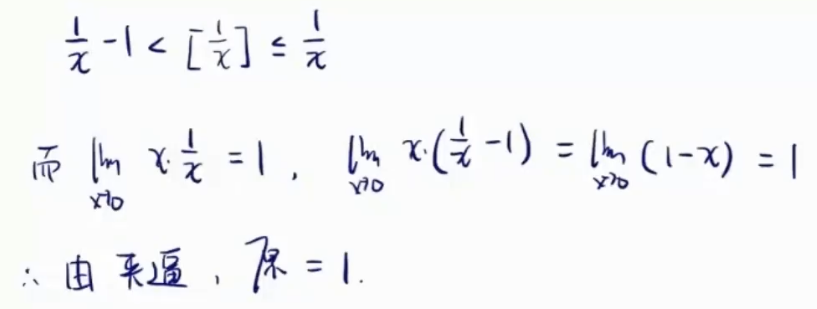 1/x - 1 < [1/x] ≤ 1/x
而 lim_{x→0} x·1/x = 1, lim_{x→0} x·(1/x - 1) = lim_{x→0} (1-x) = 1
∴ 由夹逼, 原 = 1.